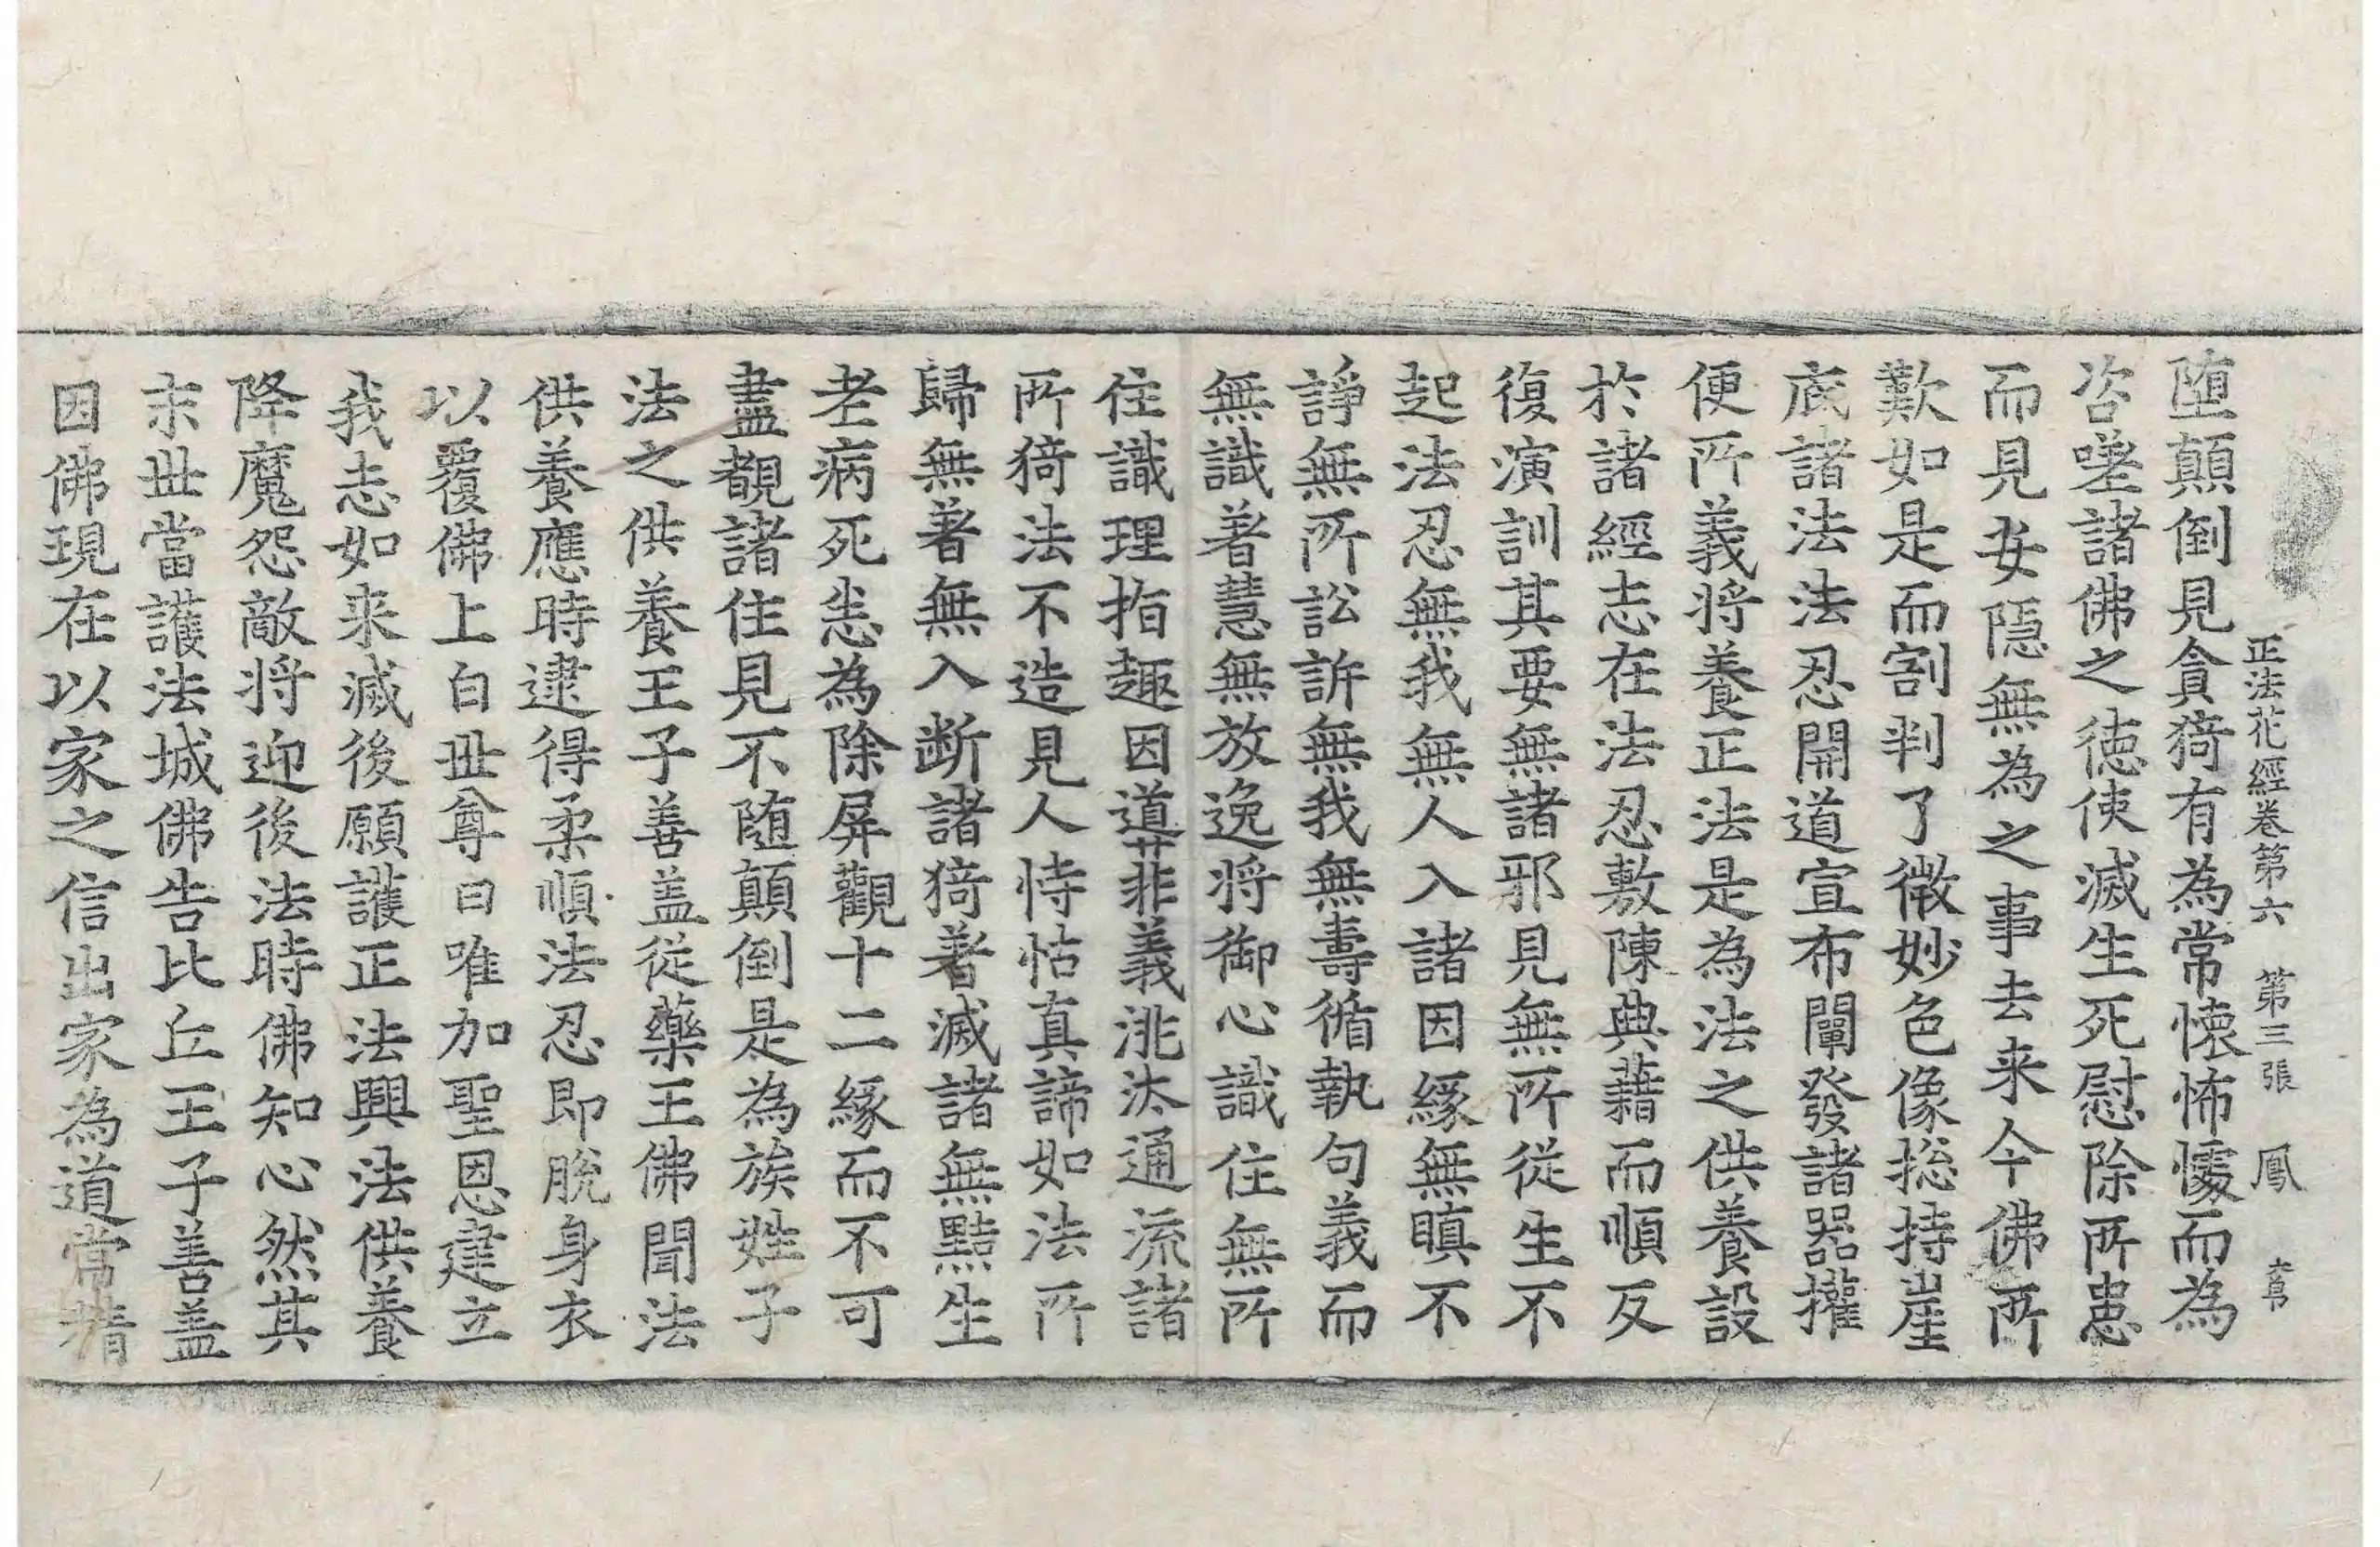 正法花經卷第六　第三張　鳳
堕顛倒見貪猗有為常懷怖懅而為
咨嗟諸佛之德使滅生死慰除所患
而見安隱無為之事去来今佛所
歎如是而割判了微妙色像捴持崖
底諸法法忍開道宣布闡發諸器權
便所義将養正法是為法之供養設
於諸經志在法忍敷陳典藉而順反
復演訓其要無諸邪見無所從生不
起法忍無我無人入諸因緣無瞋不
諍無所訟訴無我無壽循執句義而
無識著慧無放逸将御心識住無所
住識理指趣因道非義洮汰通流諸
所猗法不造見人恃怙真諦如法所
歸無著無入断諸猗著滅諸無黠生
老病死恙為除屏觀十二緣而不可
盡覩諸住見不随顛倒是為族姓子
法之供養王子善盖從藥王佛聞法
供養應時逮得柔順法忍即脫身衣
以覆佛上白世尊曰唯加聖恩建立
我志如来滅後願護正法興法供養
降魔怨敵将迎後法時佛知心然其
末世當護法城佛告比丘王子善盖
因佛現在以家之信出家為道常精